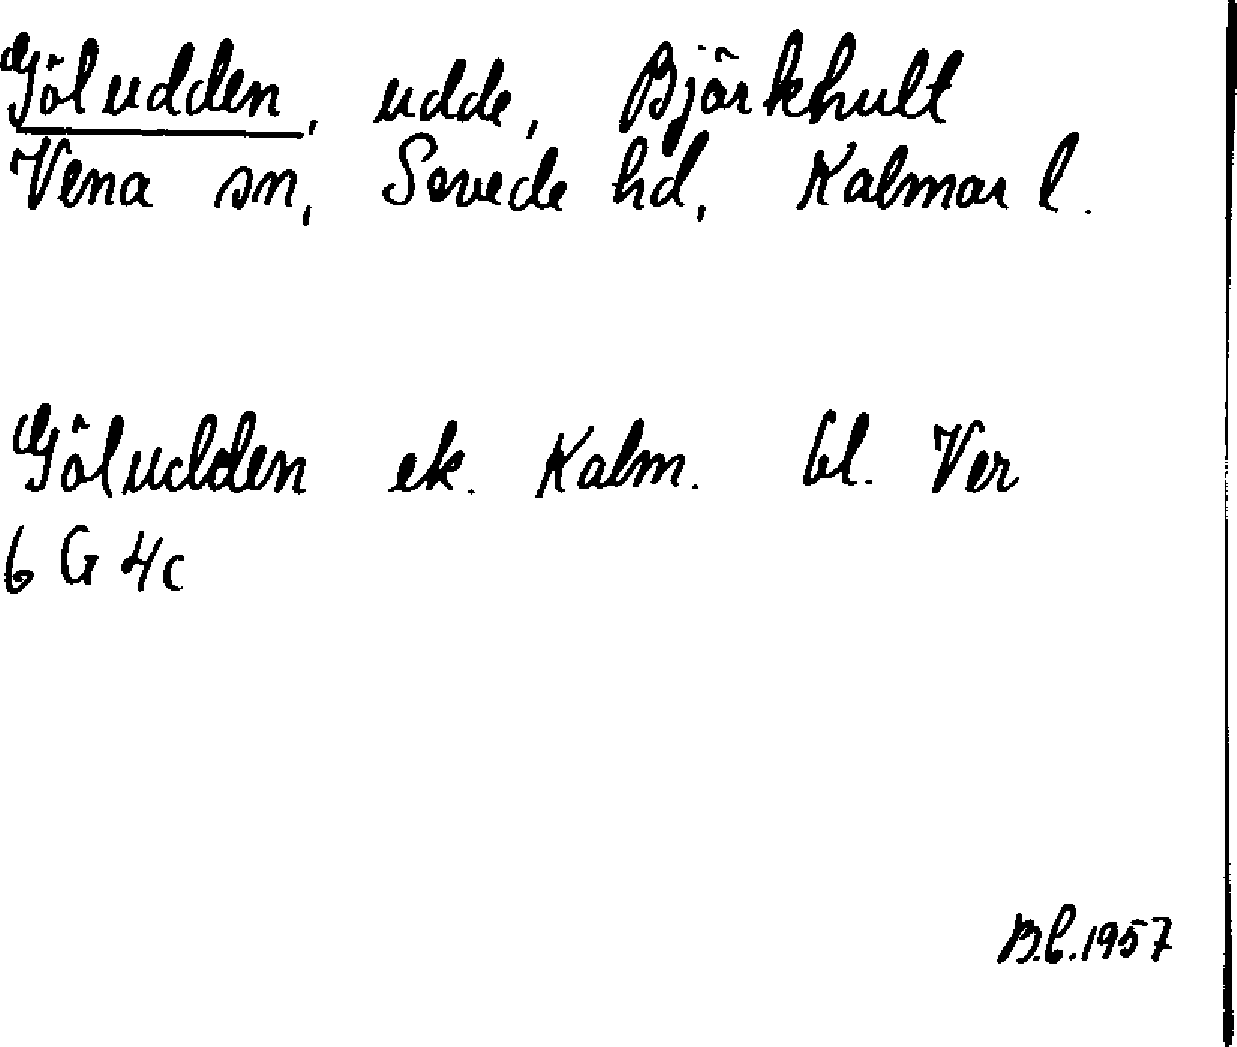 Göludden, udde, Björkhult
Vena sn, Sevede hd, Kalmar l.
Göludden ek. Kalm. bl. Ver
6 G 4c
B.C.1957